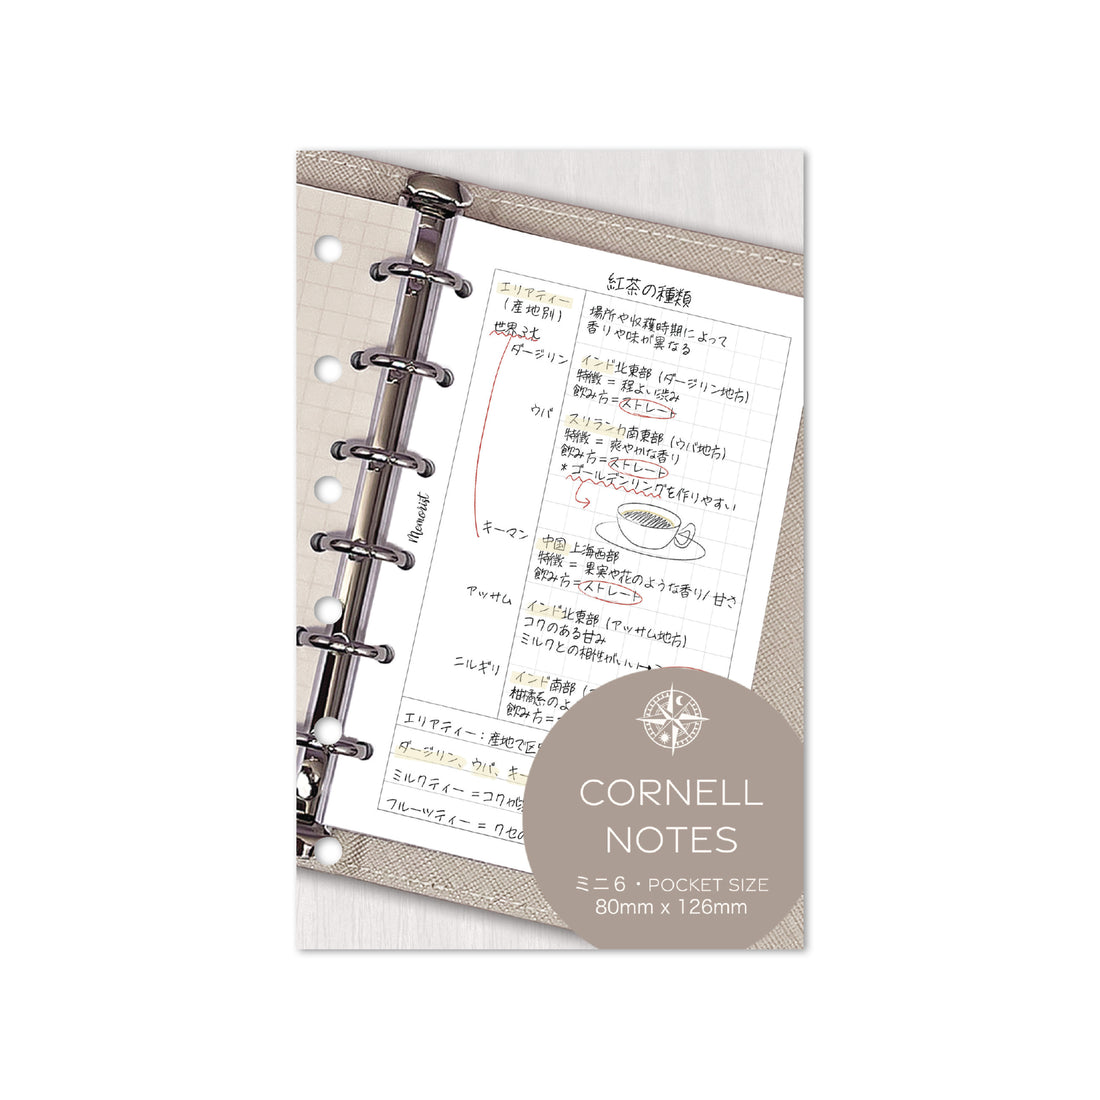 紅茶の種類
エリアティー
(産地別)
世界三大
場所や収穫時期によって
香りや味が異なる
ダージリン
インド北東部(ダージリン地方)
特徴=程よい渋み
飲み方=ストレート
ウバ
スリランカ南東部(ウバ地方)
特徴=爽やかな香り
飲み方=ストレート
*ゴールデンリングを作りやすい
キーマン
中国上海西部
特徴=果実や花のような香り/甘さ
飲み方=ストレート
アッサム
インド北東部(アッサム地方)
コクのある甘み
ミルクとの相性がいい→
ニルギリ
インド南部(
柑橘系のよ
飲み方=
エリアティー:産地で区
ダージリン、ウバ、キー
ミルクティー=コクが
フルーツティー=クセの
Memorist
CORNELL
NOTES
ミニ6・POCKET SIZE
80mm x 126mm